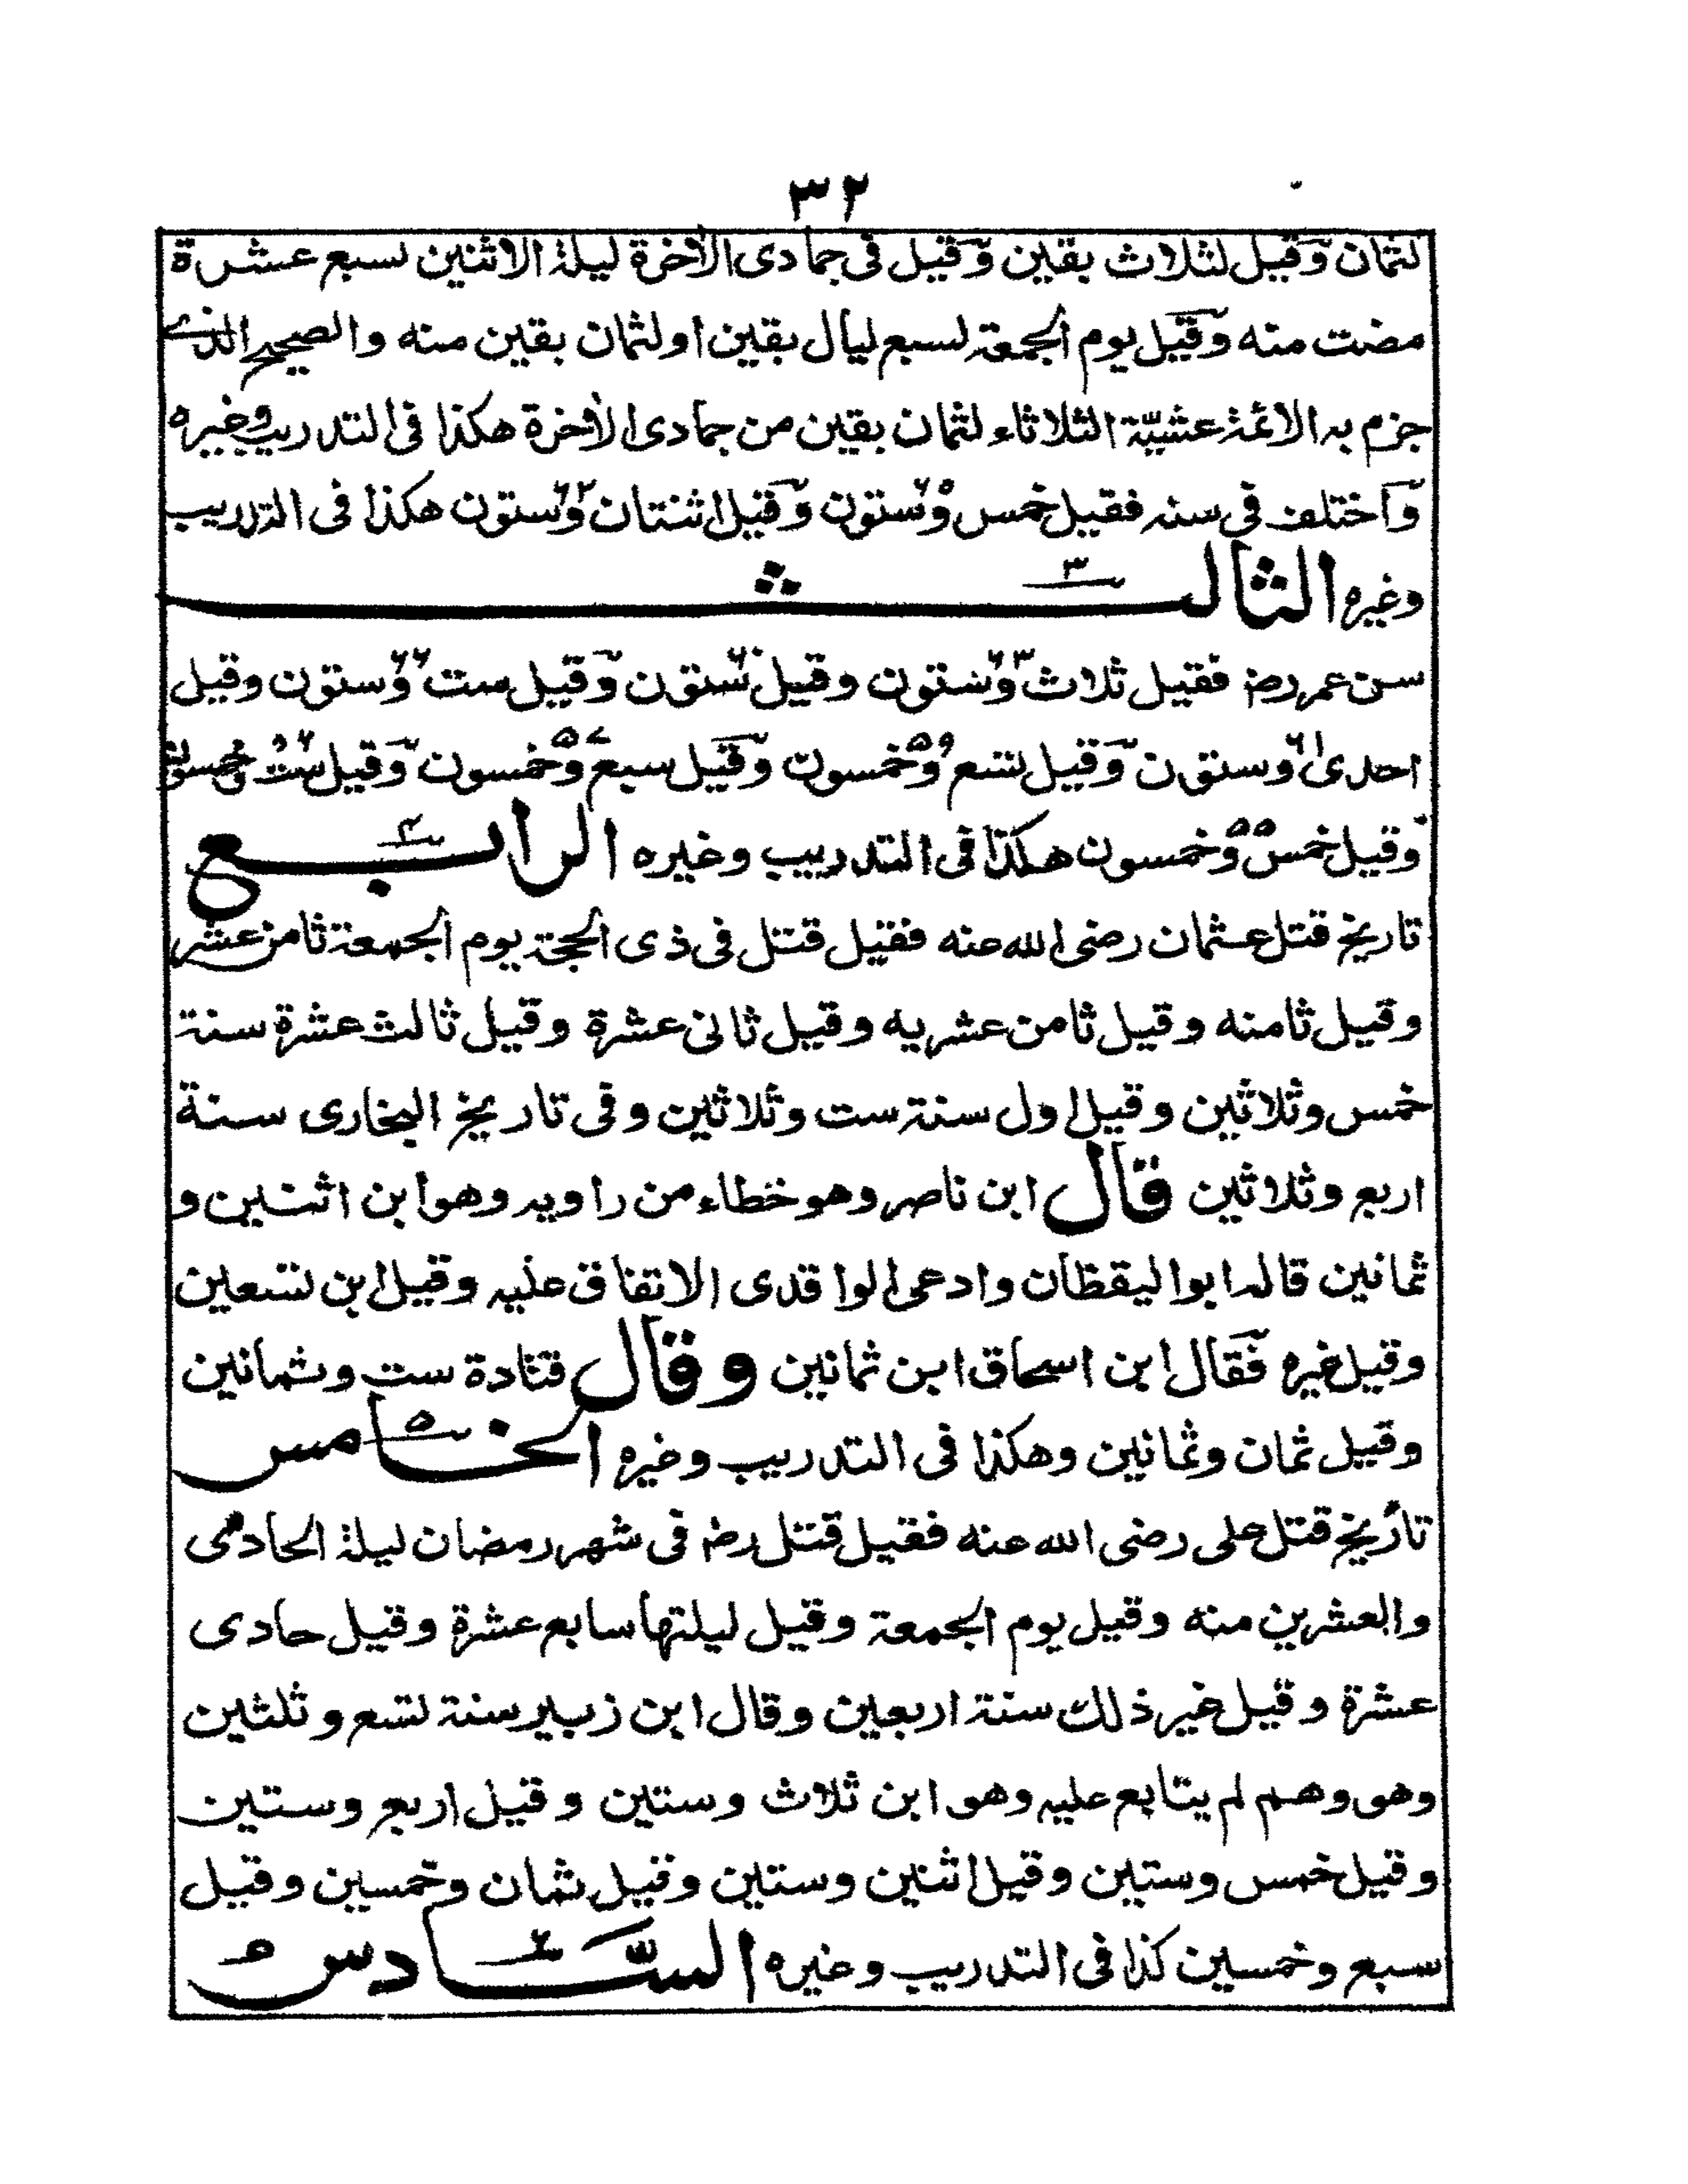 ٣٢
لثمان وقيل لثلاث بقين وقيل فى جمادى الأخرة ليلة الاثنين لسبع عشرة
مضت منه وقيل يوم الجمعة لسبع ليال بقين او لثمان بقين منه والصحيح الذے
جزم به الائمة عشيّة الثلاثاء لثمان بقين من جمادى الأخرة هكذا فى التدريب وغيره
واختلف فى سنه فقيل خمس وستون وقيل اثنتان وستون هكذا فى التدريب
وغيره الثالث ٣
سن عمر رض فقيل ثلاث وستون وقيل ستون وقيل ست وستون وقيل
احدى وستون وقيل تسع وخمسون وقيل سبع وخمسون وقيل ست وخمسون
وقيل خمس وخمسون هكذا فى التدريب وغيره الرابع
تاريخ قتل عثمان رضى الله عنه فقيل قتل فى ذى الحجة يوم الجمعة ثامن عشر
وقيل ثامنه وقيل ثامن عشريه وقيل ثانى عشرة وقيل ثالث عشرة سنة
خمس وثلاثين وقيل اول سنة ست وثلاثين وفى تاريخ البخارى سنة
اربع وثلاثين قال ابن ناصر وهو خطاء من راويه وهو ابن اثنين و
ثمانين قاله ابو اليقظان وادعى الواقدى الاتفاق عليه وقيل ابن تسعين
وقيل غيره فقال ابن اسحاق ابن ثمانين وقال قتادة ست وثمانين
وقيل ثمان وثمانين وهكذا فى التدريب وغيره الخامس ٥
تاريخ قتل على رضى الله عنه فقيل قتل رض فى شهر رمضان ليلة الحادى
والعشرين منه وقيل يوم الجمعة وقيل ليلتها سابع عشرة وقيل حادى
عشرة وقيل غير ذلك سنة اربعين وقال ابن زبير سنة تسع وثلثين
وهو وهم لم يتابع عليه وهو ابن ثلاث وستين وقيل اربع وستين
وقيل خمس وستين وقيل اثنين وستين وقيل ثمان وخمسين وقيل
سبع وخمسين كذا فى التدريب وغيره السّادس